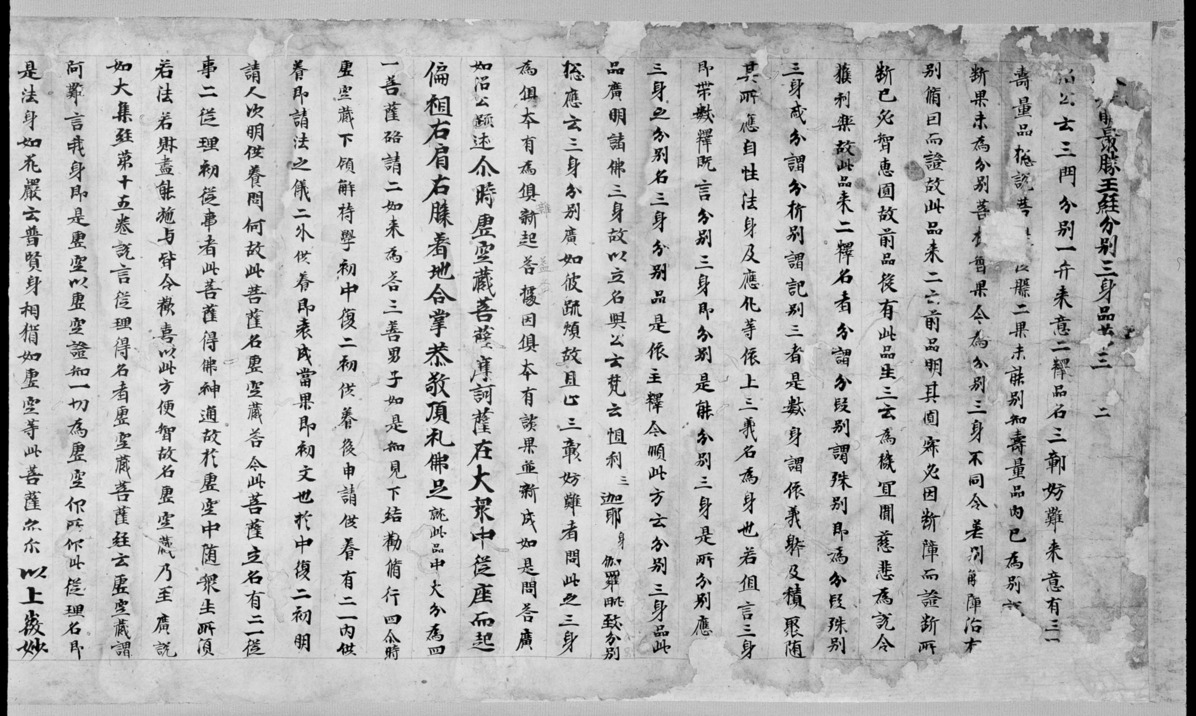 最勝王經分別三身品第三 二
公云三門分別一弁来意二釋品名三彰妨難来意有三一
壽量品捴説菩 勝二果未能別知壽量品内已為別
断果未為分別菩 智果今為分別三身不同令差別 障治
別脩因而證故此品来二云前品明其因宗必因断障而證断所
断已必智恵圓故前品後有此品生三云為機宜聞慈悲為説令
獲利楽故此品来二釋名者分謂分段別謂殊別即為分段殊別
三身或分謂分析別謂記別三者是數身謂依義躰及積聚随
其所應自性法身及應化等依上三義名為身也若但言三身
即帯數釋既言分別三身即分別是能分別三身是所分別應
三身之分別名三身分別品是依主釋今順此方云分別三身品此
品廣明諸佛三身故以立名興公云梵云怛利三迦耶身 分別
捴應云三身分別廣如彼䟽煩故且止三彰妨難者問此之三身
為俱本有為俱新起荅據因俱本有談果並新成如是問荅廣
如沼公 述尒時虚空藏菩薩摩訶薩在大衆中従座而起
偏袒右肩右膝著地合掌恭敬頂礼佛足就此品中大分為四
一菩薩啓請二如来為荅三善男子如是知見下結勸脩行四尒時
虚空藏下領解持學初中復二初供養後申請供養有二一内供
養即請法之儀二外供養即表成當果即初文也於中復二初明
請人次明供養問何故此菩薩名虚空藏荅今此菩薩立名有二一従
事二従理初従事者此菩薩得佛神通故於虚空中随衆生所須
若法若財盡能施与皆令歡喜以此方便智故名虚空藏乃至廣説
如大集經第十五巻説言従理得名者虚空藏菩薩經云虚空藏謂
阿難言我身即是虚空以虚空證知一切為虚空 所作此従理名即
是法身如花嚴云普賢身相猶如虚空等此菩薩亦尒以上微妙